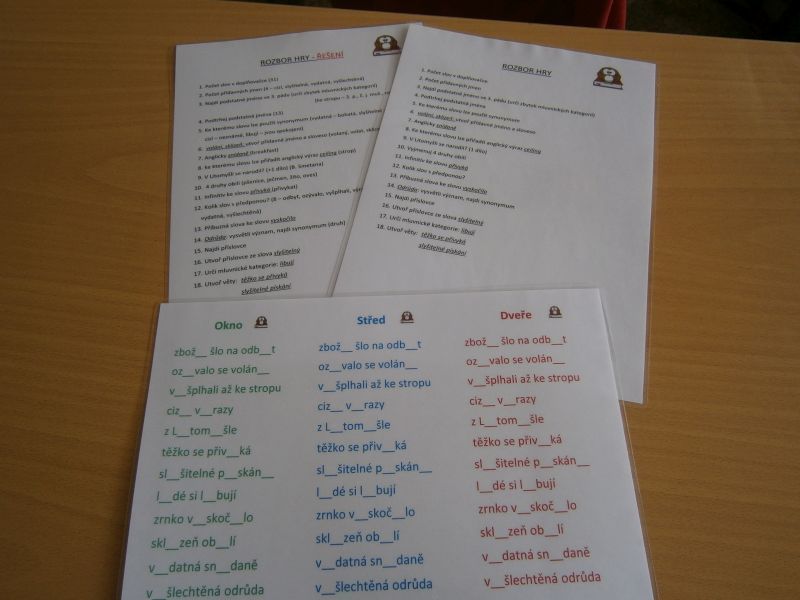 ROZBOR HRY - ŘEŠENÍ
1. Počet slov v doplňovačce (31)
2. Počet přídavných jmen (4 – cizí, slyšitelné, vydatná, vyšlechtěná)
3. Najdi podstatné jméno ve 3. pádu (urči zbytek mluvnických kategorií)
(ke stropu – 3. p., č. j.
4. Podtrhej podstatná jména (13)
5. Ke kterému slovu lze použít synonymum (vydatná – bohatá, slyšitelné
cizí – neznámé, libují – jsou spokojeni)
6. volání, sklizeň, utvoř přídavné jméno a sloveso (volaný, volat,
7. Anglicky snídaně (breakfast)
8. Ke kterému slovu lze přiřadit anglický výraz ceiling (strop)
9. V Litomyšli se narodil? (+1 dílo) (B. Smetana)
10. 4 druhy obilí (pšenice, ječmen, žito, oves)
11. Infinitiv ke slovu přivyká (přivykat)
12. Kolik slov s předponou? (8 – odbyt, ozývalo, vyšplhali,
vydatná, vyšlechtěná)
13. Příbuzná slova ke slovu vyskočilo
14. Odrůda: vysvětli význam, najdi synonymum (druh)
15. Najdi příslovce
16. Utvoř příslovce ze slova slyšitelný
17. Urči mluvnické kategorie: libují
18. Utvoř věty: těžko se přivyká
slyšitelné pískání
ROZBOR HRY
1. Počet slov v doplňovačce
2. Počet přídavných jmen
3. Najdi podstatné jméno ve 3. pádu (urči zbytek mluvnických kategorií)
4. Podtrhej podstatná jména
5. Ke kterému slovu lze použít synonymum
6. volání, sklizeň, utvoř přídavné jméno a sloveso
7. Anglicky snídaně
8. Ke kterému slovu lze přiřadit anglický výraz ceiling
9. V Litomyšli se narodil? (1 dílo)
10. Vyjmenuj 4 druhy obilí
11. Infinitiv ke slovu přivyká
12. Kolik slov s předponou?
13. Příbuzná slova ke slovu vyskočilo
14. Odrůda: vysvětli význam, najdi synonymum
15. Najdi příslovce
16. Utvoř příslovce ze slova slyšitelný
17. Urči mluvnické kategorie: libují
18. Utvoř věty: těžko se přivyká
slyšitelné pískání
Okno
zbož__ šlo na odb__t
oz__valo se volán__
v__šplhali až ke stropu
ciz__ v__razy
z L__tom__šle
těžko se přiv__ká
sl__šitelné p__skán__
l__dé si l__bují
zrnko v__skoč__lo
skl__zeň ob__lí
v__datná sn__daně
v__šlechtěná odrůda
Střed
zbož__ šlo na odb__t
oz__valo se volán__
v__šplhali až ke stropu
ciz__ v__razy
z L__tom__šle
těžko se přiv__ká
sl__šitelné p__skán__
l__dé si l__bují
zrnko v__skoč__lo
skl__zeň ob__lí
v__datná sn__daně
v__šlechtěná odrůda
Dveře
zbož__ šlo na odb__t
oz__valo se volán__
v__šplhali až ke stropu
ciz__ v__razy
z L__tom__šle
těžko se přiv__ká
sl__šitelné p__skán__
l__dé si l__bují
zrnko v__skoč__lo
skl__zeň ob__lí
v__datná sn__daně
v__šlechtěná odrůda